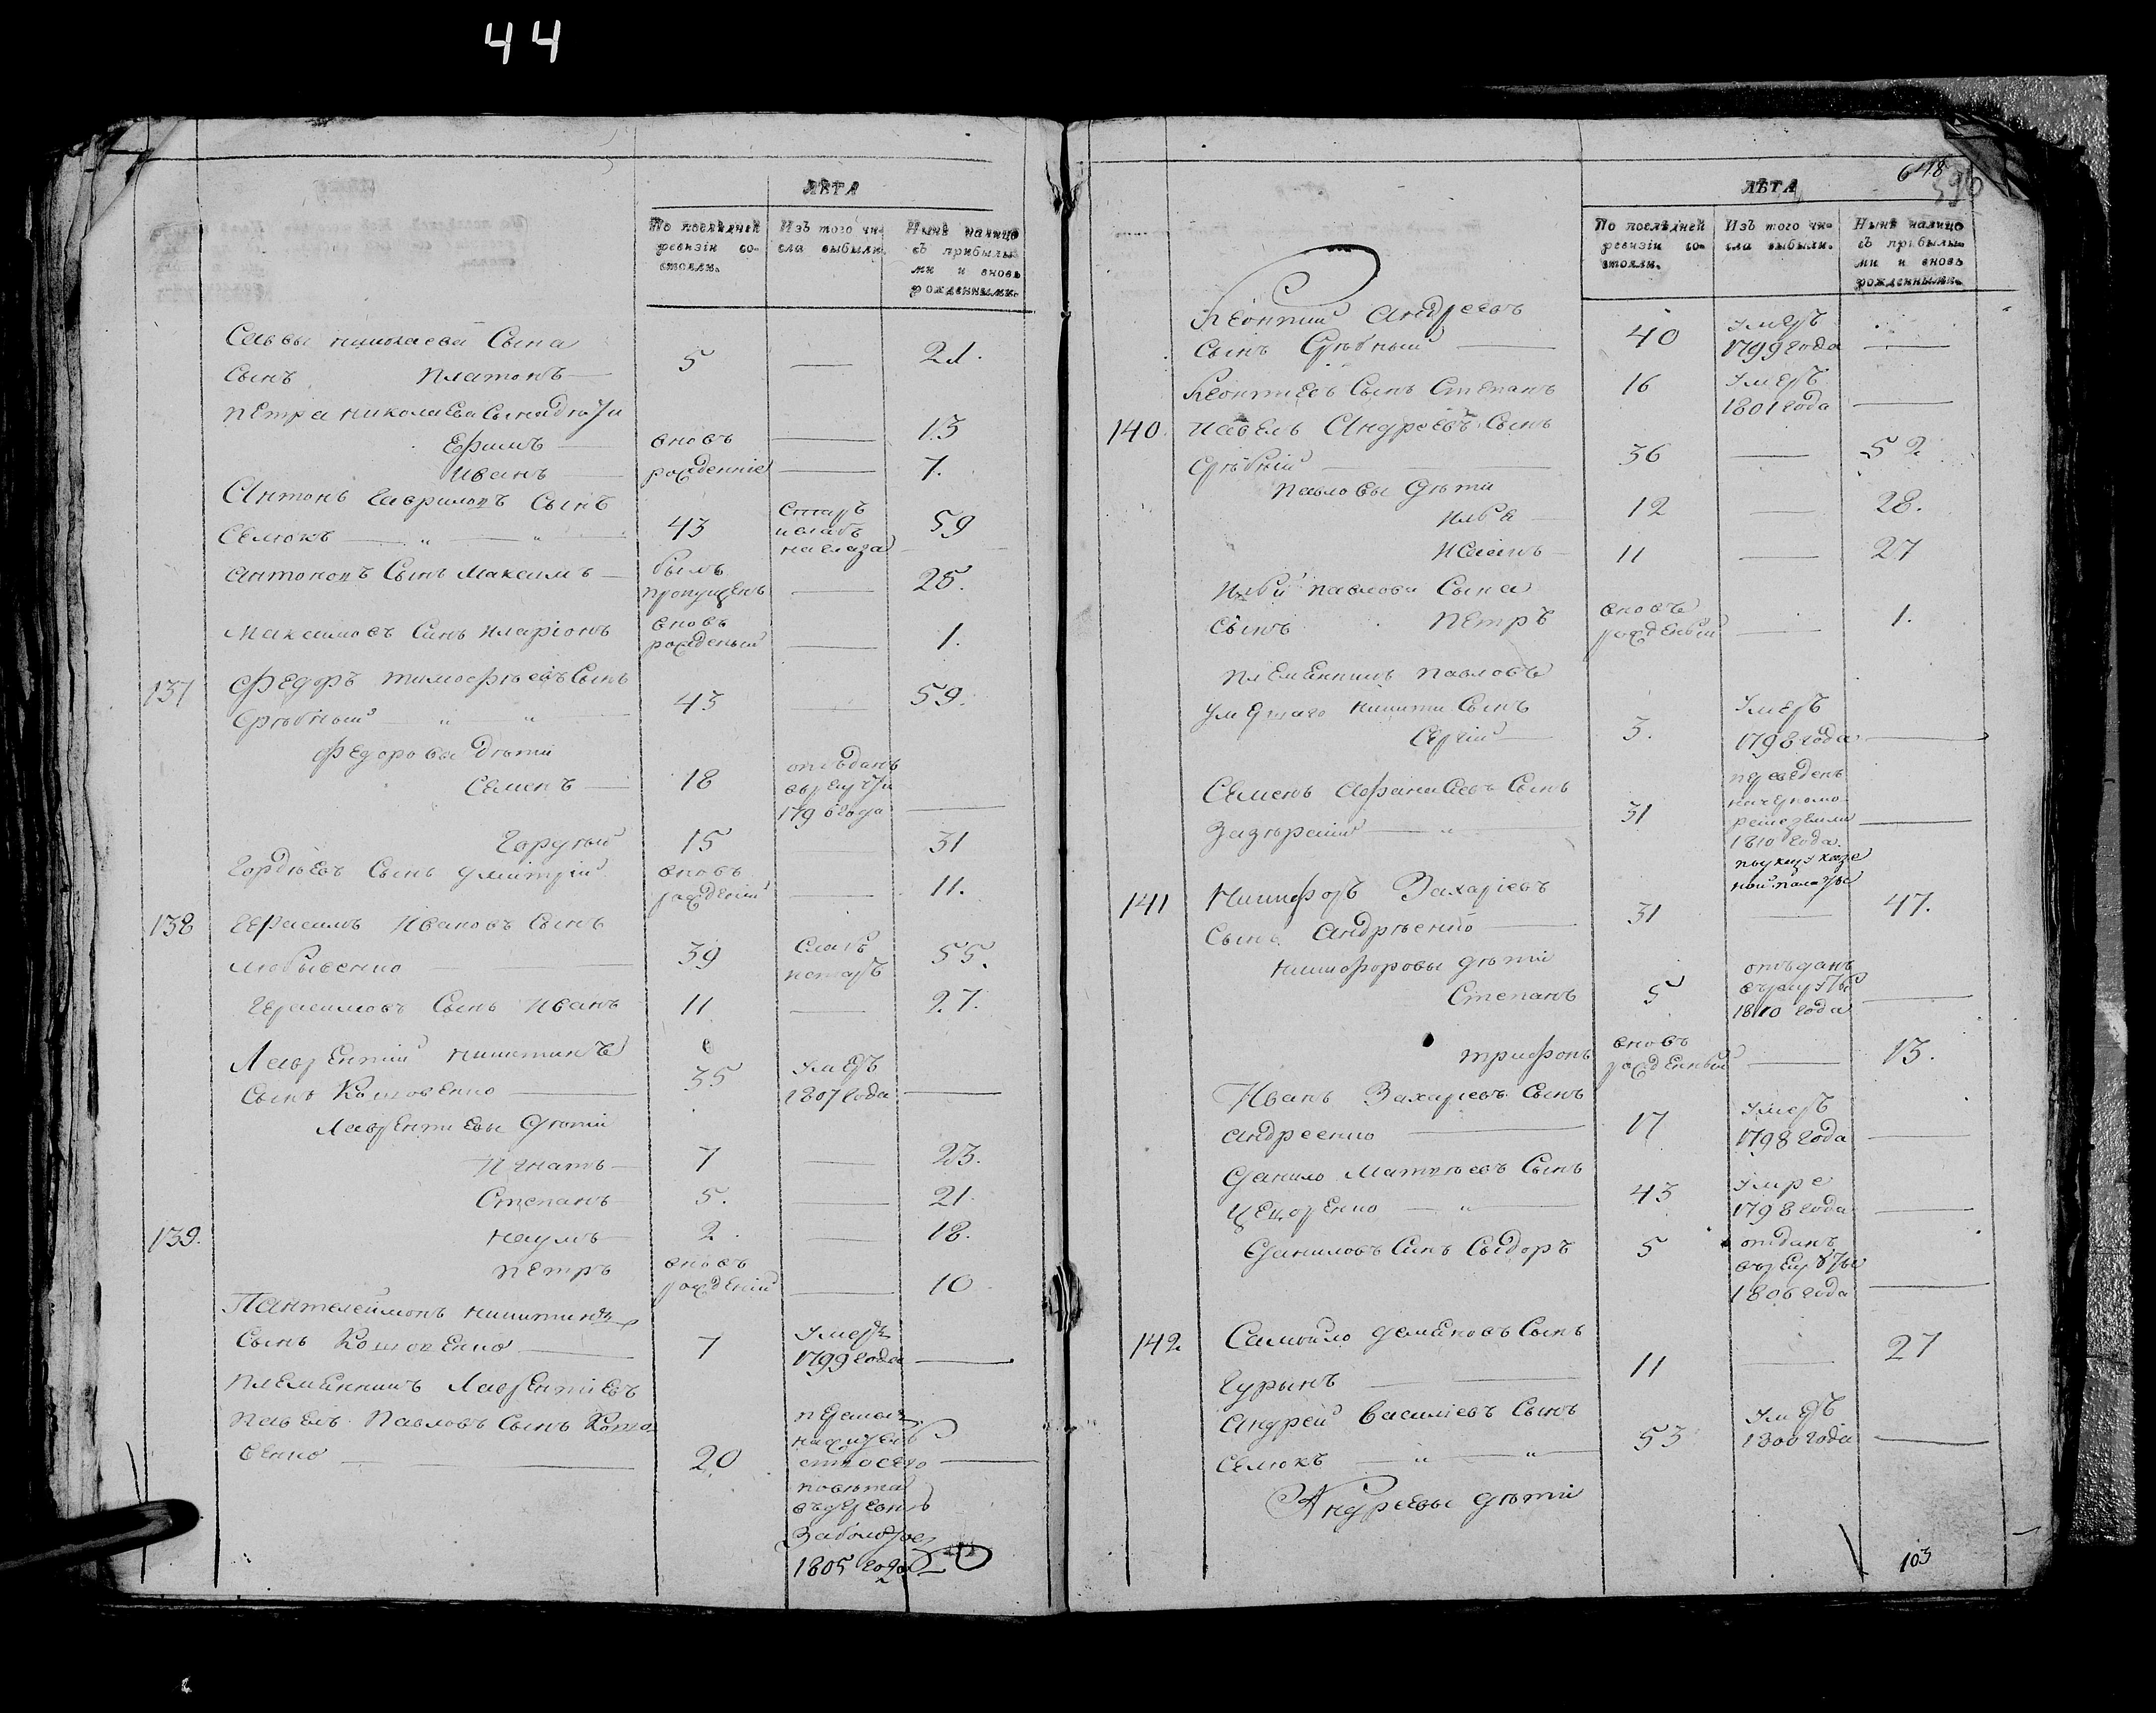 44
ЛѢТА
По послѣдней ревизіи со- стояли.
Изъ того чи- сла выбыли.
Нынѣ налицо съ прибылы- ми и вновь рожденными.
Саввы Николаева Сына
Сынъ Платонъ — 5 — 21.
Петра Николаева Сына дѣти
Ефимъ — вновь — 13
Иванъ — рожденніе — 7.
Антонъ Гавриловъ Сынъ
Семюкъ — „ — „ — 43 Старъ
59
Антоновъ Сынъ Максимъ — былъ
пропущенъ — 25.
Максимовъ Синъ Иларіонъ вновь
рожденый — 1.
137 Федоръ Тимофѣевъ Сынъ
Срѣбный — „ „ 43 — 59.
Федоровы дѣти
Семенъ — 18 отъданъ
в рекруты
1796 года —
15 — 31
Гордѣевъ Сынъ Дмитрій вновь
рожденій — 11.
138 Герасимъ Ивановъ Сынъ
39 Слабъ
и старъ 55.
Герасимовъ Сынъ Иванъ 11 — 27.
Лаврентій Никитинъ
Сынъ Кошовенко — 35 Умеръ
1807 года —
Лаврентіевы дѣти
Игнатъ — 7 — 23.
Степанъ 5. — 21.
139. Наумъ 2. — 18.
Петръ вновь
рожденій — 10
Пантелеймонъ Никитинъ
Сынъ Кошовенко — 7 Умеръ
1799 года —
Племянникъ Лаврентіевъ
Павелъ Павловъ Сынъ Кошо-
венко — 20
повѣта
въ деревнѣ
1805 года
648
596
ЛѢТА
По послѣдней ревизіи со- стояли.
Изъ того чи- сла выбыли.
Нынѣ налицо съ прибылы- ми и вновь рожденными.
Леонтий Андреевъ
Сынъ Срѣбный — 40 Умеръ
1799 года —
Леонтіевъ Сынъ Степанъ 16 Умеръ
1801 года —
140. Павелъ Андреевъ Сынъ
Срѣбній — 36 — 52
Павловы дѣти
Илья 12 — 28.
11 — 27
Ильи Павлова Сына
Сынъ Петръ вновь
рожденый — 1.
Племянникъ Павловъ
умершаго Никити Сынъ
Сергій — 3. Умеръ
1798 года —
Семенъ Афанасіевъ Сынъ
31 переведенъ
на черномо-
1810 года.
141 Никифоръ Захаріевъ
Сынъ Андрѣенко — 31 — 47.
Никифоровы дѣти
Степанъ 5 отъданъ
въ рекруты
1810 года —
Трифонъ вновь
рожденный — 13.
Иванъ Захаріевъ Сынъ
Андреенко — 17 Умеръ
1798 года —
Данило Матвѣевъ Сынъ
43 Умре
1798 года —
Даниловъ Синъ Сыдоръ 5 отданъ
въ рекруты
1806 года —
142. Самойло Деменовъ Сынъ
Гурынъ — 11 — 27
Андрей Василіевъ Сынъ
Семюкъ — „ — „ 53 Умеръ
1800 года —
Андреевы дѣти
103